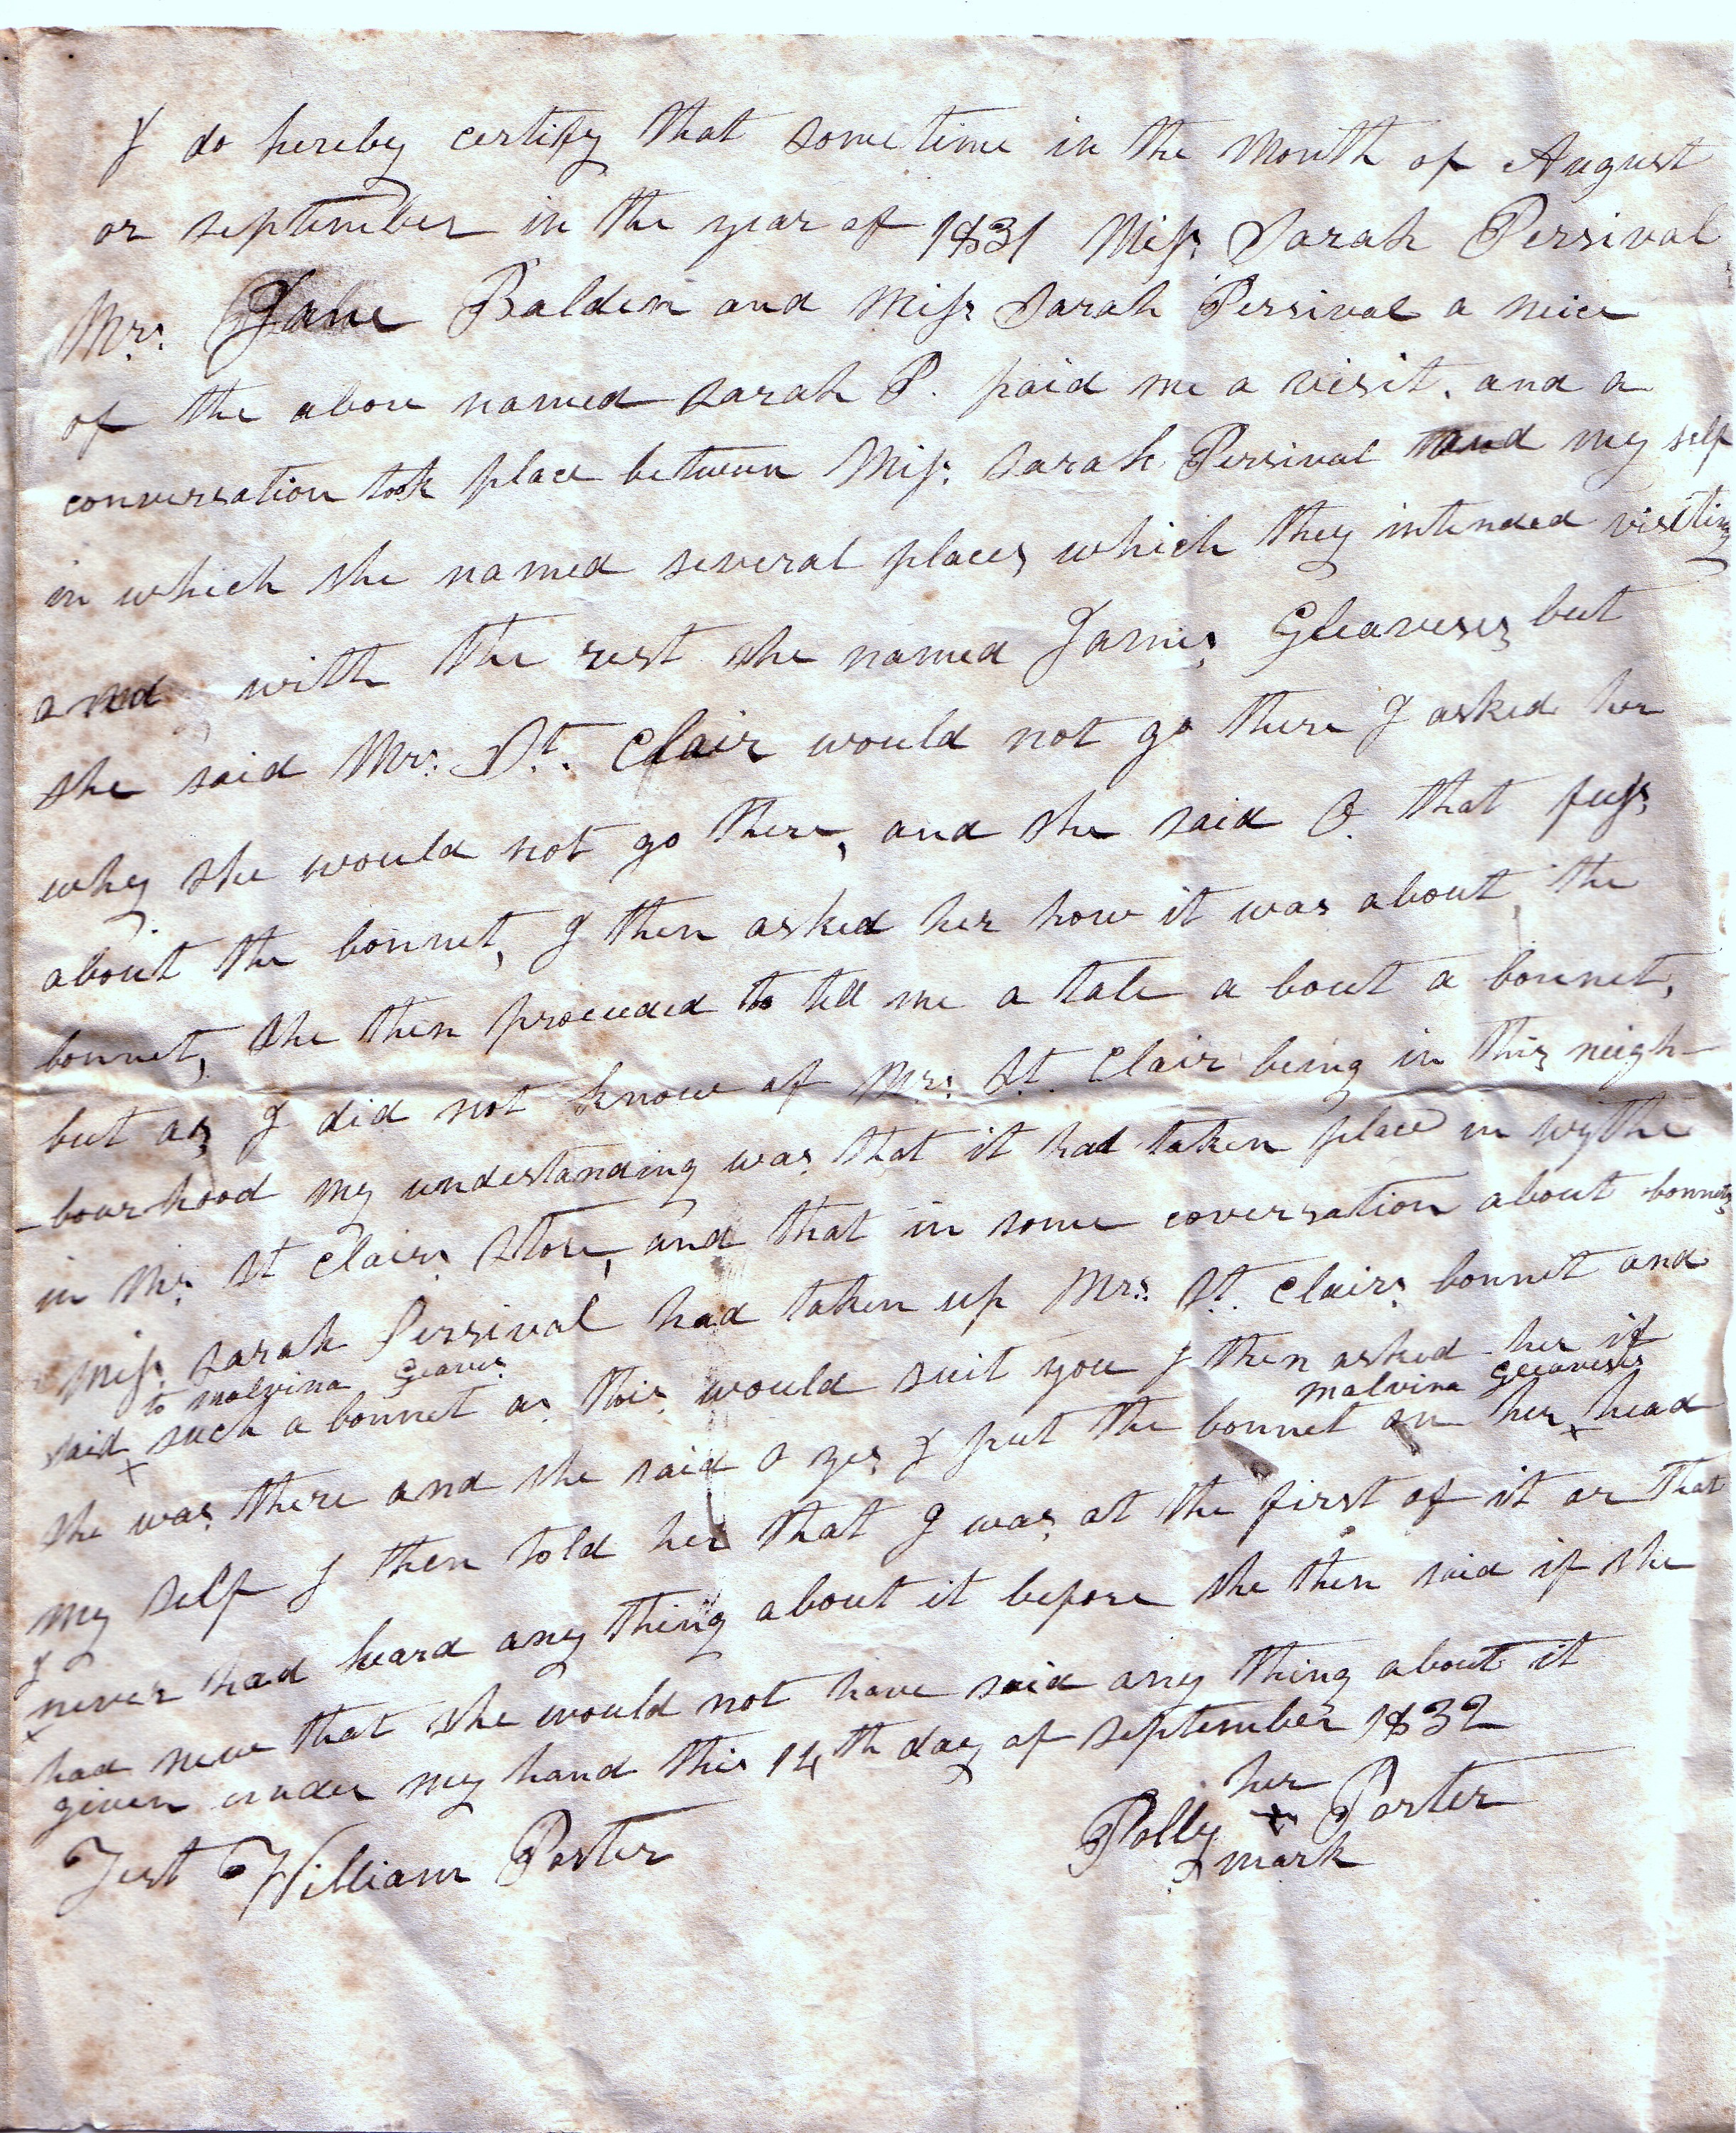 I do hereby certify that sometime in the Month of August
or september in the year of 1831 Miss Sarah Persival
Mrs. Jane Balden and Miss Sarah Persival a neice
of the above named sarah P. paid me a visit. and a
conversation took place between Miss. Sarah Persival and my self
in which she named several places which they intended visiting
and with the rest she named James Gleaveses but
she said Mrs. St. Clair would not go there I asked her
why she would not go there, and she said O. that fuss
about the bonnet, I then asked her how it was about the
bonnet, she then proceeded to tell me a tale a bout a bonnet,
but as I did not know of Mrs. St. Clair being in this neigh-
-bourhood my undestanding was that it had taken place in wythe
in Mr. St Clairs store, and that in some coversation about bonnets
Miss. sarah Persival had taken up Mrs. St. Clairs bonnet and
to malvina Gleaves
said x such a bonnet as this would suit you I then asked her if
malvina Gleaveses
she was there and she said O yes I put the bonnet on her x head
my self I then told her that I was at the first of it or that
I
x never had heard any thing about it before she then said if she
had new that she would not have said any thing about it
given under my hand this 14th day of september 1832
her
Polly x Porter
mark
Test William Porter